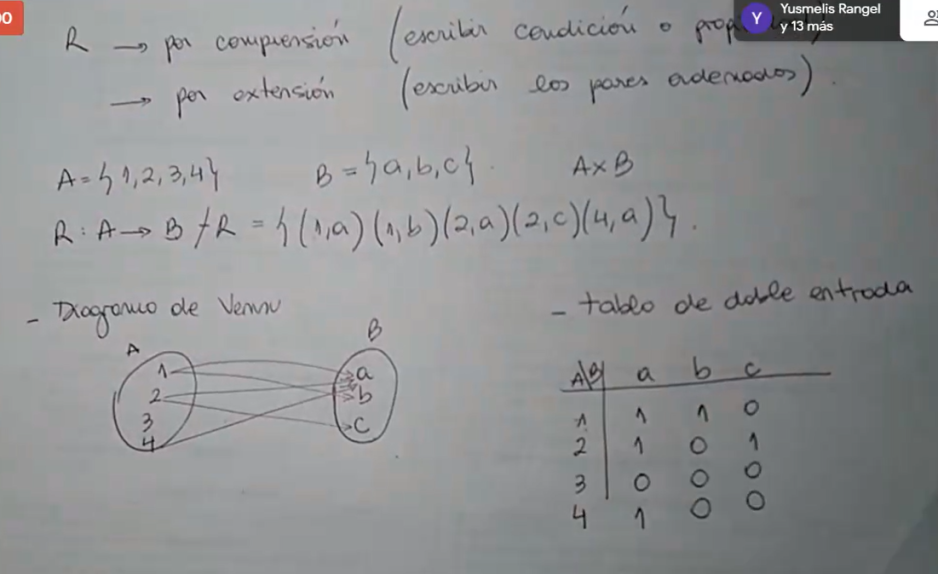 00
Yusmelis Rangel
y 13 más
R → por comprensión (escribir condición o
→ por extensión (escribir los pares ordenados).
A = {1,2,3,4} B = {a,b,c}. A×B
R : A → B / R = {(1,a)(1,b)(2,a)(2,c)(4,a)}.
- Diagrama de Venn
- tabla de doble entrada
A B
1 a
2 b
3 c
4
A\B a b c
1 1 1 0
2 1 0 1
3 0 0 0
4 1 0 0